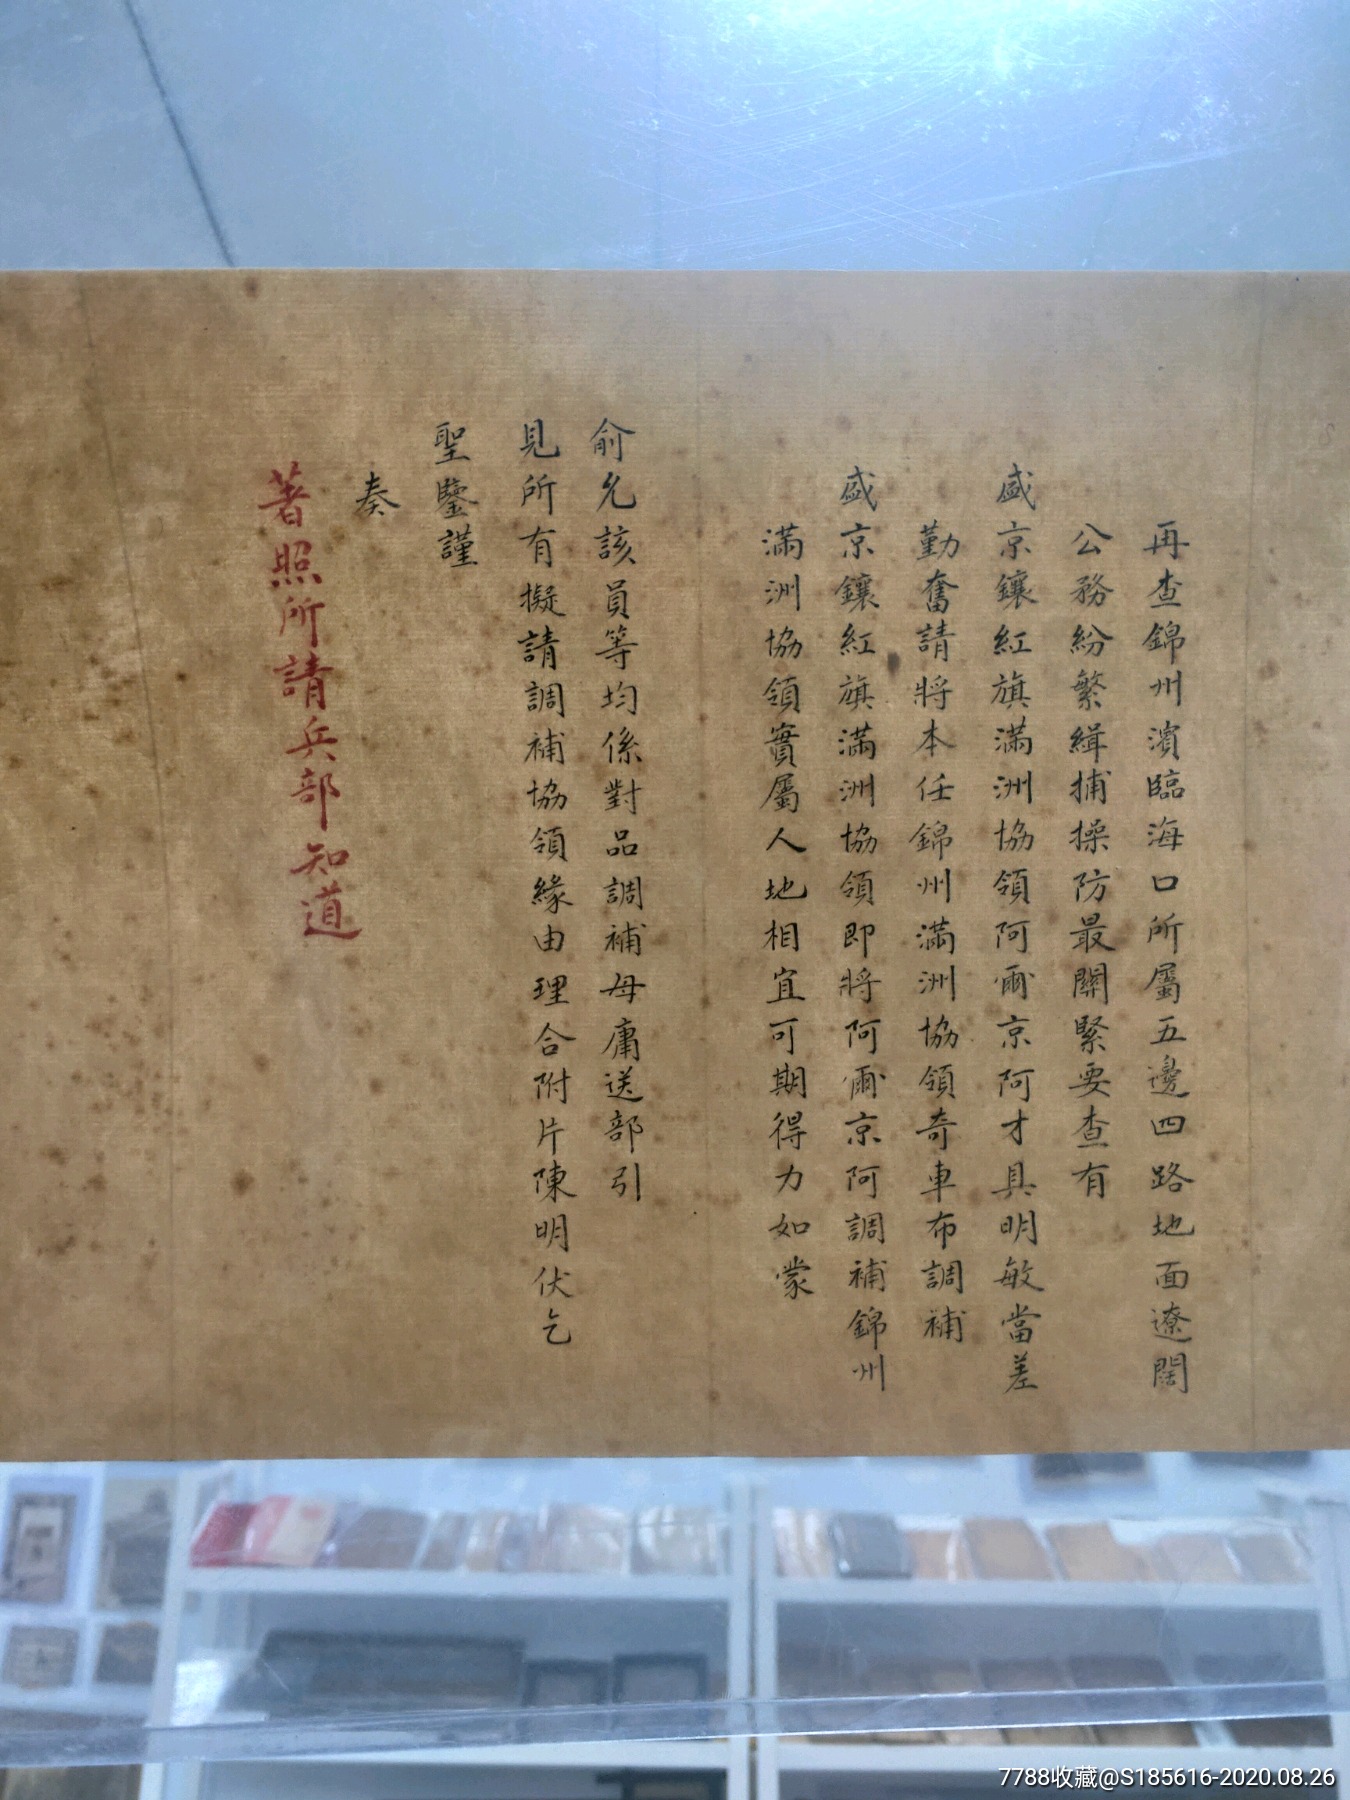 再查錦州濱臨海口所屬五邊四路地面遼闊
公務紛繁緝捕操防最關緊要查有
盛京鑲紅旗滿洲協領阿爾京阿才具明敏當差
勤奮請將本任錦州滿洲協領奇車布調補
盛京鑲紅旗滿洲協領即將阿爾京阿調補錦州
滿洲協領實屬人地相宜可期得力如蒙
俞允該員等均係對品調補毋庸送部引
見所有擬請調補協領緣由理合附片陳明伏乞
聖鑒謹
奏
著照所請兵部知道
7788收藏@S185616-2020.08.26